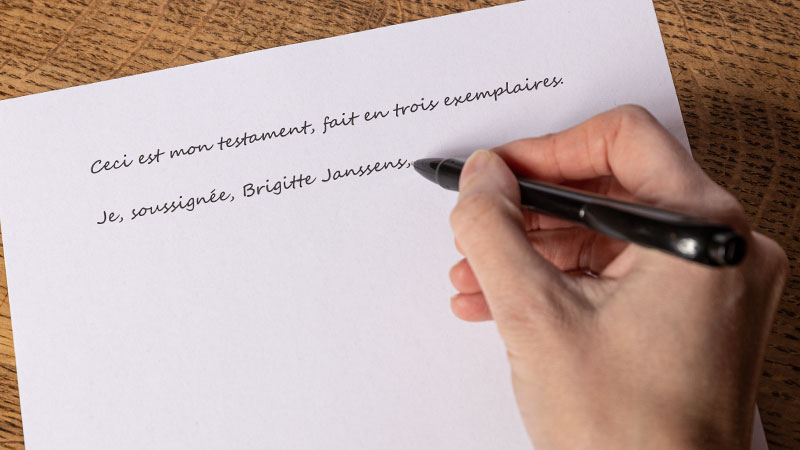 Ceci est mon testament, fait en trois exemplaires.
Je, soussignée, Brigitte Janssens,